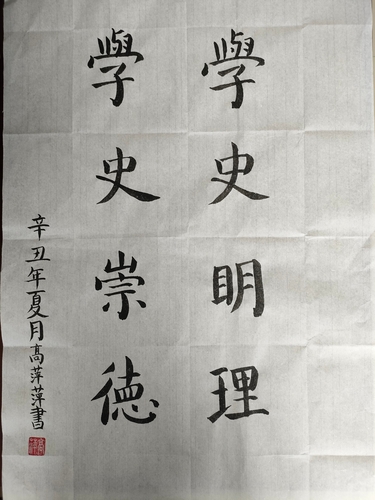 學史明理
學史崇德
辛丑年夏月高萍萍書